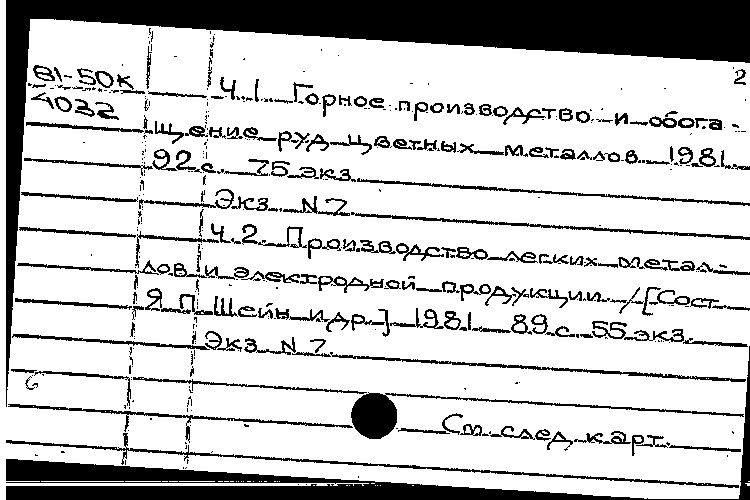 2
81-50к Ч.1. Горное производство и обога-
4032
щение руд цветных металлов 1981.
92 с. 75 экз.
Экз. N 7.
Ч.2. Производство легких метал-
лов и электродной продукции / [Сост.
Я.П. Шейн и др.] 1981. 89 с. 55 экз.
Экз. N 7.
6
См. след. карт.